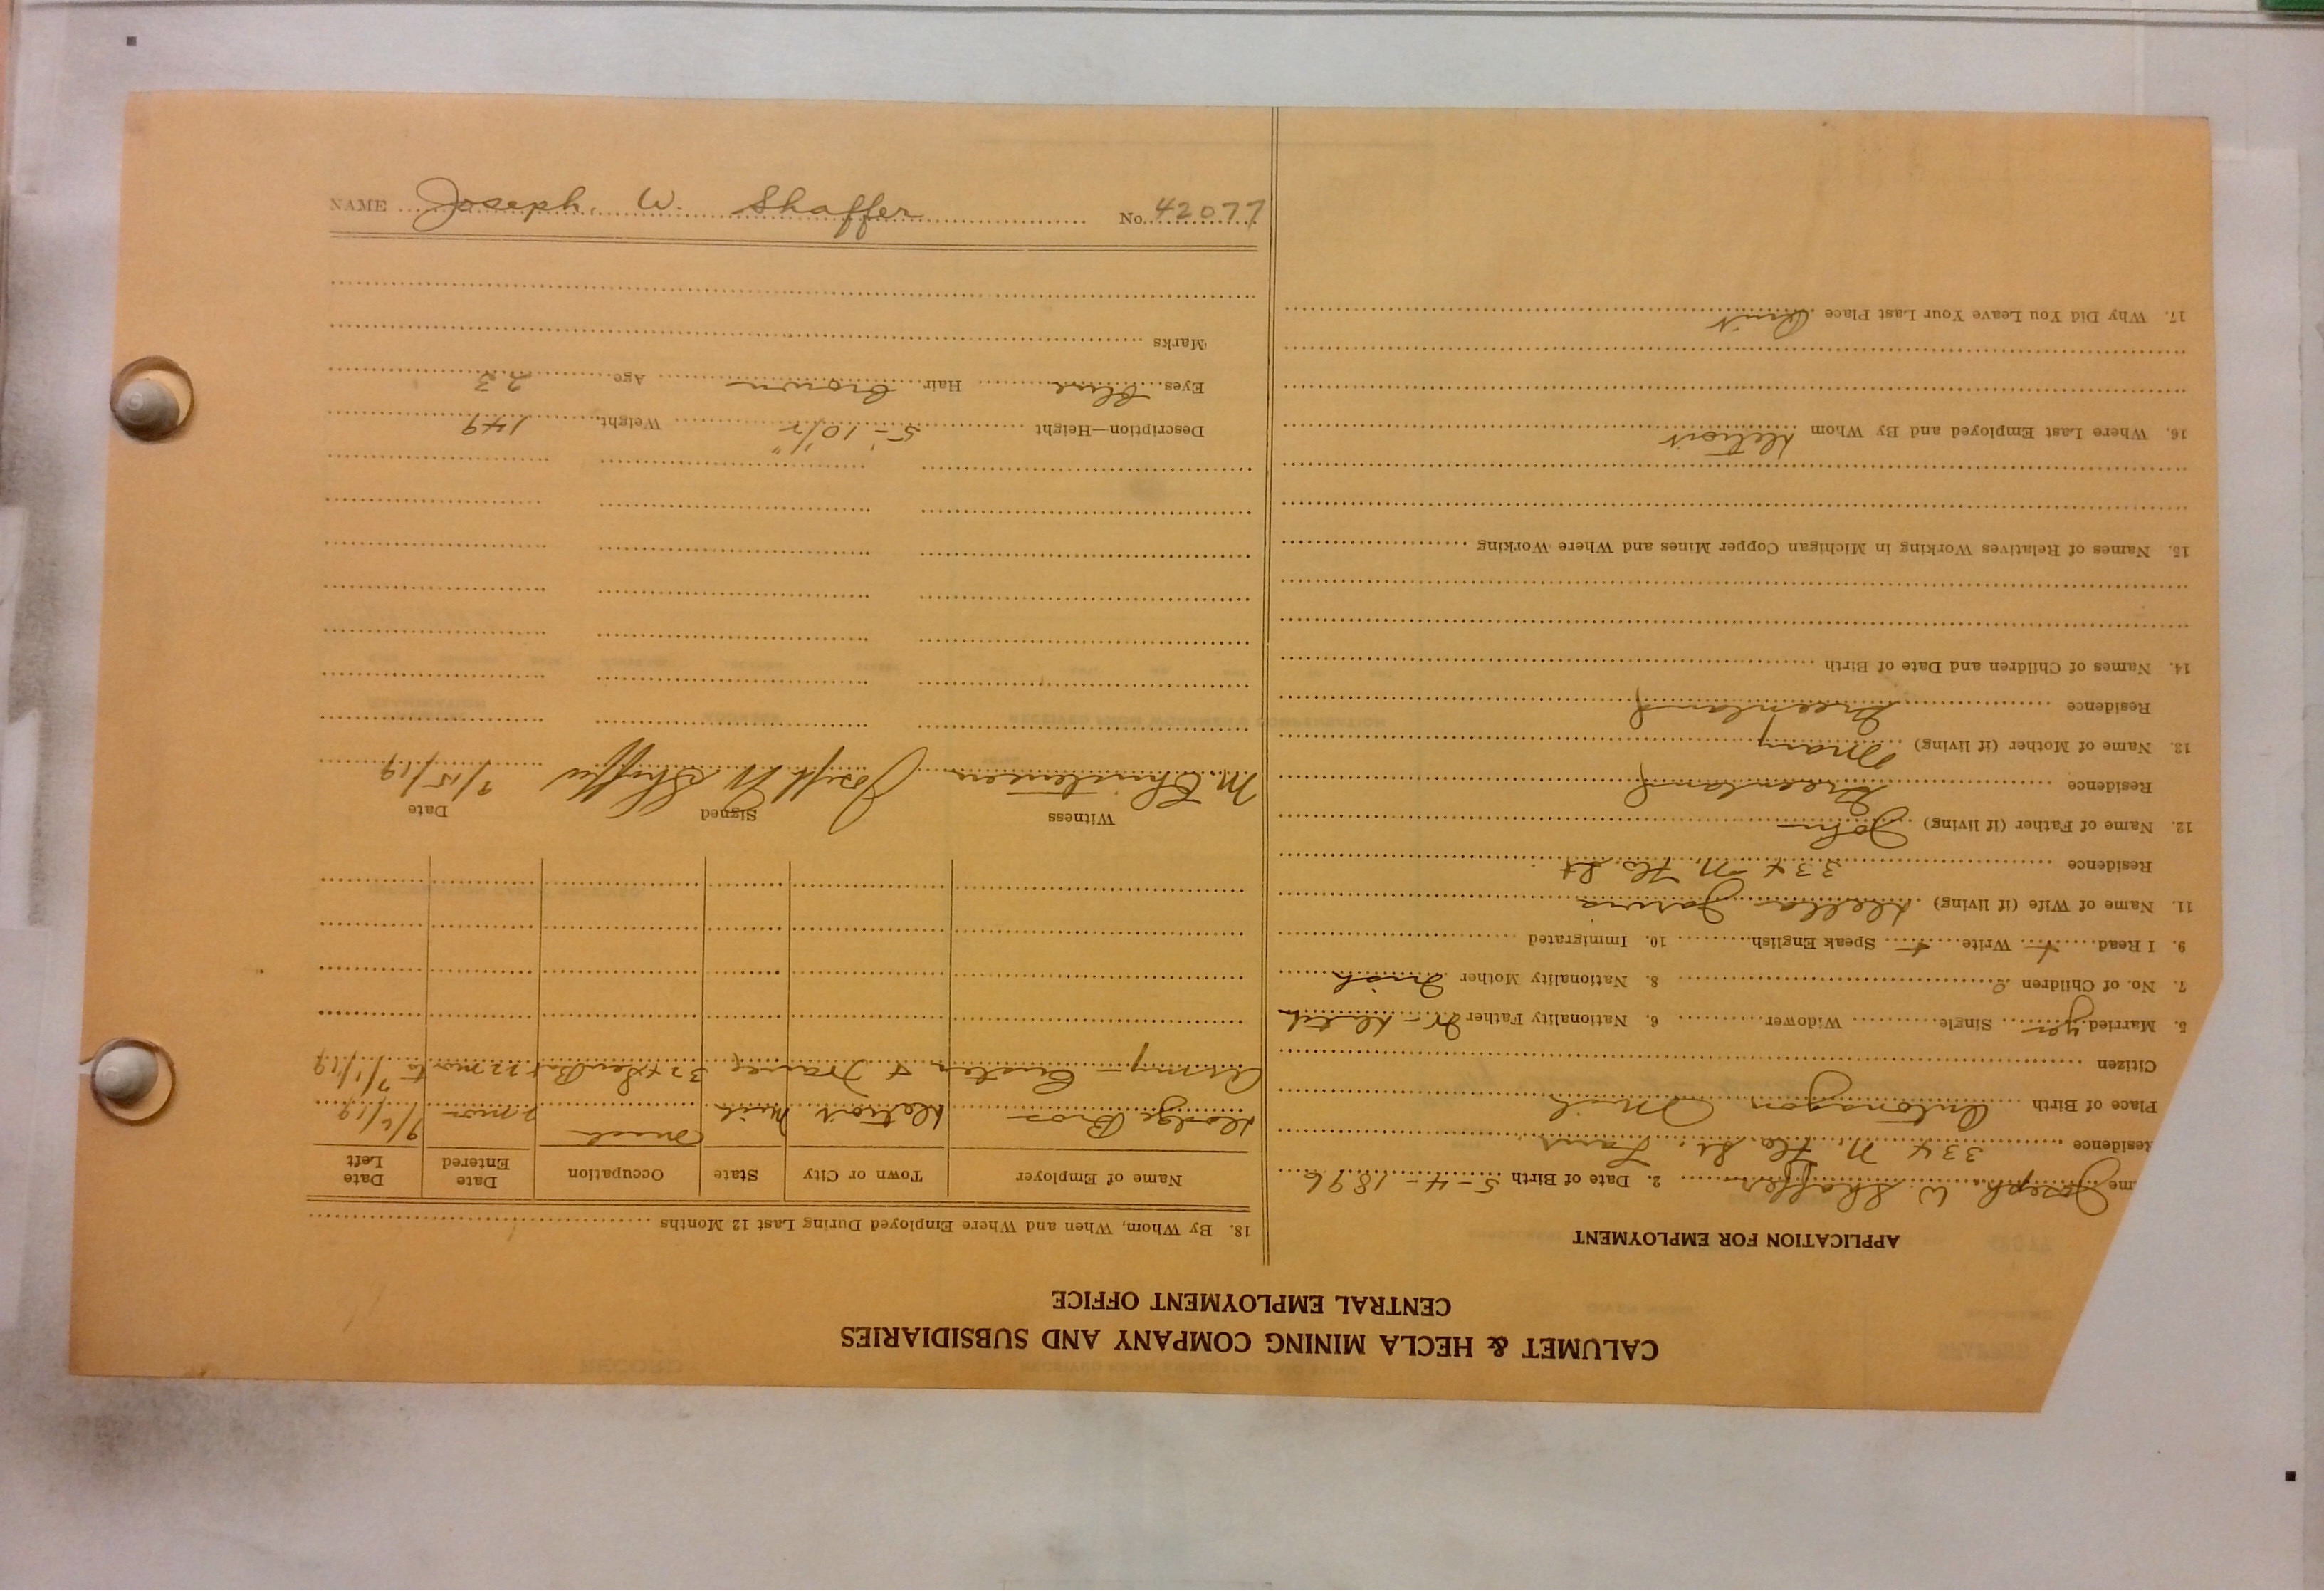 CALUMET & HECLA MINING COMPANY AND SUBSIDIARIES
CENTRAL EMPLOYMENT OFFICE
APPLICATION FOR EMPLOYMENT
me Joseph W Shaffer 2. Date of Birth 5-4-1896
Residence 334 N. Flo. St.
Place of Birth Ontonagon Mich
Citizen
5. Married yes Single Widower 6. Nationality Father
7. No. of Children 0 8. Nationality Mother Irish
9. I Read + Write + Speak English 10. Immigrated
11. Name of Wife (if living) Della Jarvis
Residence 334 N. Flo. St
12. Name of Father (if living) John
Residence Greenland
13. Name of Mother (if living) Mary
Residence Greenland
14. Names of Children and Date of Birth
15. Names of Relatives Working in Michigan Copper Mines and Where Working
16. Where Last Employed and By Whom Detroit
17. Why Did You Leave Your Last Place Quit
18. By Whom, When and Where Employed During Last 12 Months
Name of Employer Town or City State Occupation Date Entered Date Left
Dodge Bros Detroit Mich 2 mos 9/6/19
Army - France 22 mos to 7/1/19
Witness Signed Date
M. Christensen Joseph W Shaffer 9/15/19
Description—Height 5'-10 1/2" Weight 149
Eyes blue Hair brown Age 23
Marks
NAME Joseph. W. Shaffer No. 42077